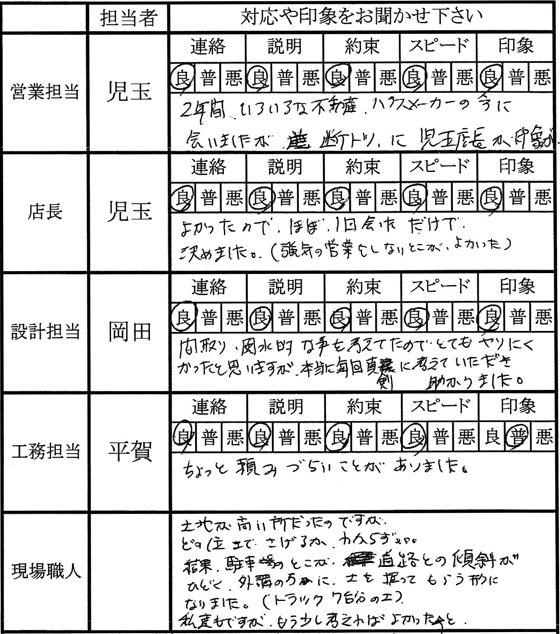 担当者 対応や印象をお聞かせ下さい
営業担当 児玉
連絡 説明 約束 スピード 印象
良 普 悪 良 普 悪 良 普 悪 良 普 悪 良 普 悪
2年間、いろいろな不動産、ハウスメーカーの方に
会いましたが 断トツ に 児玉店長が、印象が
店長 児玉
連絡 説明 約束 スピード 印象
良 普 悪 良 普 悪 良 普 悪 良 普 悪 良 普 悪
よかったので、ほぼ、1回会った だけで
決めました。(強気の営業をしないとこが、よかった)
設計担当 岡田
連絡 説明 約束 スピード 印象
良 普 悪 良 普 悪 良 普 悪 良 普 悪 良 普 悪
間取り・風水的な事を考えてたのでとてもヤリにく
かったと思いますが、本当に毎回真剣に考えていただき
助かりました。
工務担当 平賀
連絡 説明 約束 スピード 印象
良 普 悪 良 普 悪 良 普 悪 良 普 悪 良 普 悪
ちょっと 頼みづらいことが ありました。
現場職人
土地が高い所だったのですが、
どの位まで さげるか、わからずに、
結果、駐車場のとこが、道路との傾斜が
ひどく、外構のために、土を掘ってもらう形に
なりました。(トラック7台分の土)
私達もですが、もう少し考えればよかったと